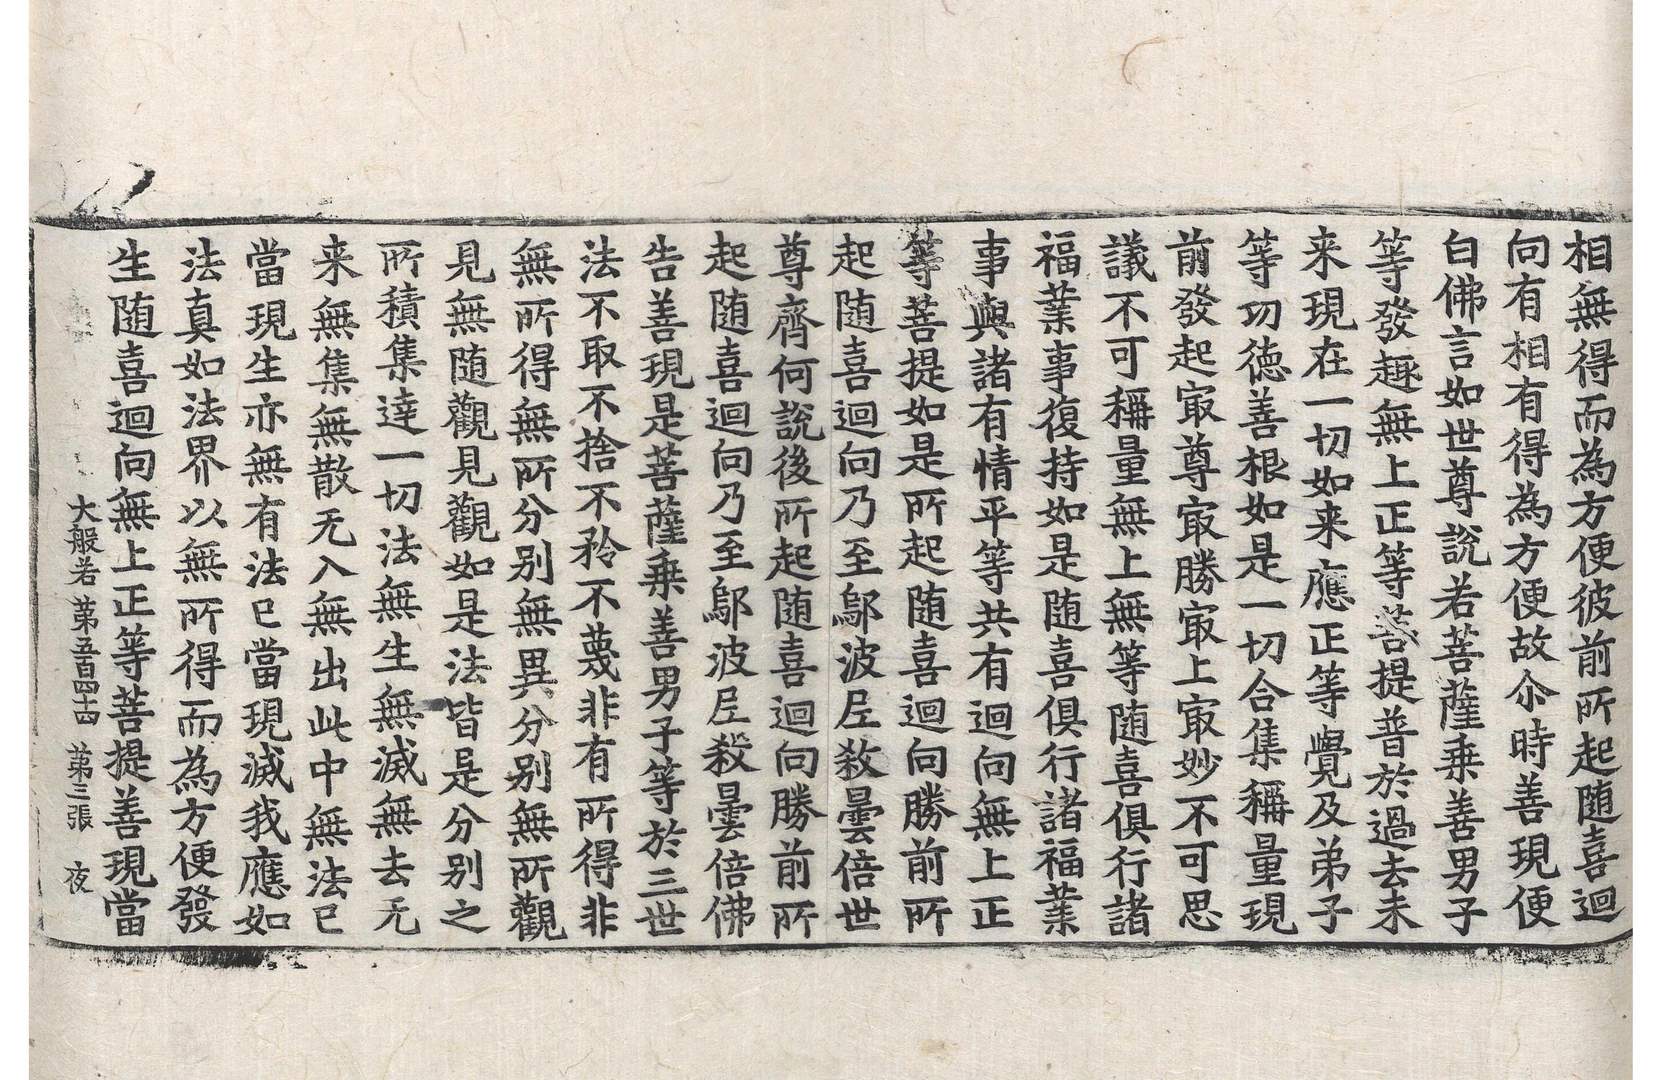 相無得而為方便彼前所起随喜迴
向有相有得為方便故尒時善現便
白佛言如世尊說若菩薩乗善男子
等發趣無上正等菩提普於過去未
来現在一切如来應正等覺及弟子
等功德善根如是一切合集稱量現
前發起㝡尊㝡勝㝡上㝡妙不可思
議不可稱量無上無等随喜俱行諸
福業事復持如是随喜俱行諸福業
事與諸有情平等共有迴向無上正
等菩提如是所起随喜迴向勝前所
起随喜迴向乃至鄔波尼殺曇倍世
尊齊何說後所起随喜迴向勝前所
起随喜迴向乃至鄔波尼殺曇倍佛
告善現是菩薩乗善男子等於三世
法不取不捨不矜不蔑非有所得非
無所得無所分别無異分别無所觀
見無随觀見觀如是法皆是分别之
所積集達一切法無生無滅無去无
来無集無散无入無出此中無法已
當現生亦無有法已當現滅我應如
法真如法界以無所得而為方便發
生随喜迴向無上正等菩提善現當
大般若 苐五百四十四 苐三張 夜